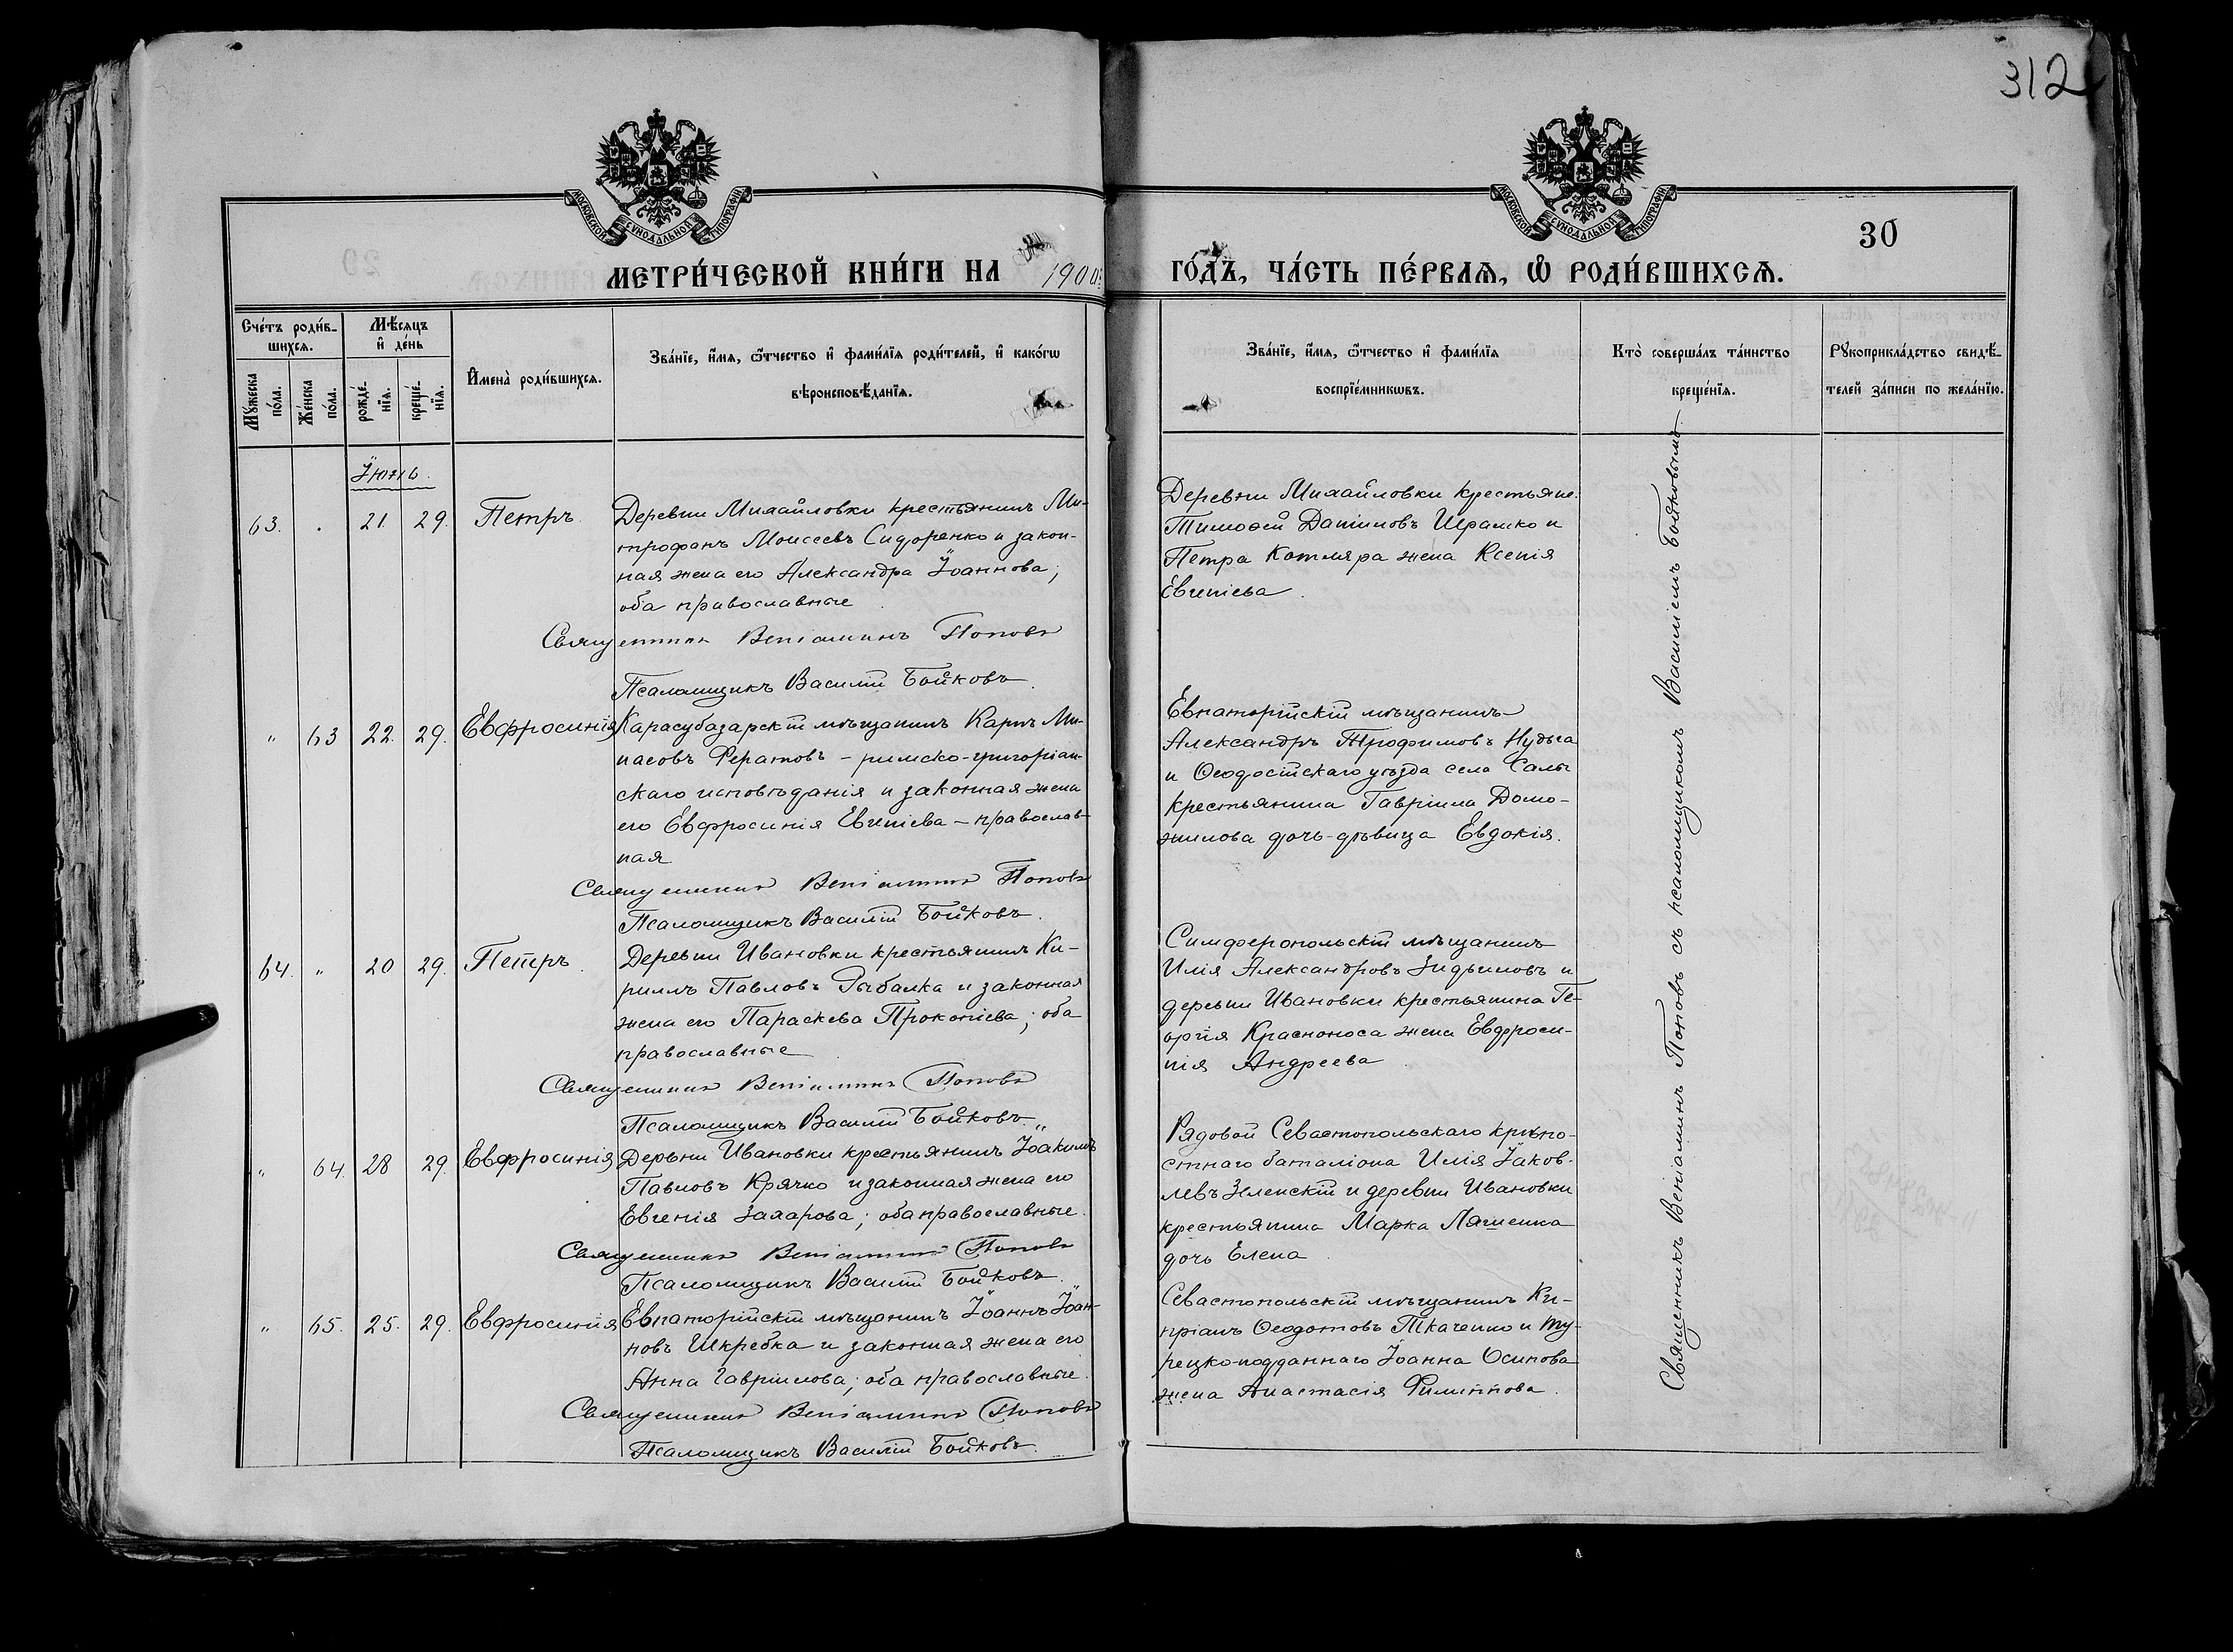 312
МОСКОВСКОЙ СѴНОДАЛЬНОЙ ТИПОГРАФІИ
МОСКОВСКОЙ СѴНОДАЛЬНОЙ ТИПОГРАФІИ
30
МЕТРИ́ЧЕСКОЙ КНИ́ГИ НА 1900
ГО́ДЪ, ЧА́СТЬ ПЕ́РВАѦ, Ѡ҆ РОДИ́ВШИХСѦ.
Сче́тъ роди́в-
шихсѧ.
Мꙋ́жеска
по́ла.
Же́нска
по́ла.
Мѣ́сѧцъ
и҆ де́нь
рожде́-
нїѧ.
креще́-
нїѧ.
И҆мена̀ роди́вшихсѧ.
Зва́нїе, и҆́мѧ, ѻ҆́тчество и҆ фами́лїѧ роди́телей, и҆ како́гѡ
вѣроисповѣ́данїѧ.
Зва́нїе, и҆́мѧ, ѻ҆́тчество и҆ фами́лїѧ
воспрїе́мникѡвъ.
Кто̀ соверша́лъ та́инство
креще́нїѧ.
Рꙋкоприкла́дство свидѣ́-
телей за́писи по жела́нїю.
Іюнь.
63. . 21 29. Петръ.
Деревни Михайловки крестьянинъ Ми-
трофанъ Моисеевъ Сидоренко и закон-
ная жена его Александра Іоаннова;
оба православные
Священникъ Веніаминъ Поповъ
Псаломщикъ Василій Бойковъ.
Деревни Михайловки крестьяне:
Тимоѳей Даніиловъ Шрамко и
Петра Котляра жена Ксенія
Евгеніева.
" 63 22. 29. Евфросинія
Карасубазарскій мѣщанинъ Карпъ Ми-
насовъ Фератовъ – римско-григоріан-
скаго исповѣданія и законная жена
его Евфросинія Евгеніева – православ-
ная
Священникъ Веніаминъ Поповъ
Псаломщикъ Василій Бойковъ.
Евпаторійскій мѣщанинъ
Александръ Трофимовъ Нудьга
и Ѳеодосійскаго уѣзда села Салы
крестьянина Гавріила Домо-
жилова дочь-дѣвица Евдокія.
64. " 20 29. Петръ.
Деревни Ивановки крестьянинъ Ки-
риллъ Павловъ Рыбалка и законная
жена его Параскева Прокопіева; оба
православные
Священникъ Веніаминъ Поповъ
Псаломщикъ Василій Бойковъ.
Симферопольскій мѣщанинъ
Илія Александровъ и
деревни Ивановки крестьянина Ге-
оргія Красноноса жена Евфроси-
нія Андреева
" 64. 28 29. Евфросинія
Деревни Ивановки крестьянинъ Іоакимъ
Павловъ Крячко и законная жена его
Евгенія Захарова; оба православные.
Священникъ Веніаминъ Поповъ
Псаломщикъ Василій Бойковъ.
Рядовой Севастопольскаго крѣпо-
стнаго баталіона Илія Іаков-
левъ Зеленскій и деревни Ивановки
крестьянина Марка Ляшенка
дочь Елена
" 65. 25. 29. Евфросинія
Евпаторійскій мѣщанинъ Іоаннъ Іоан-
новъ Шкребка и законная жена его
Анна Гавріилова; оба православные.
Священникъ Веніаминъ Поповъ
Псаломщикъ Василій Бойковъ.
Севастопольскій мѣщанинъ Ки-
пріанъ Ѳеодотовъ Ткаченко и ту-
рецко-подданнаго Іоанна Осипова
жена Анастасія Филиппова.
Священникъ Веніаминъ Поповъ съ псаломщикомъ Василіемъ Бойковымъ.